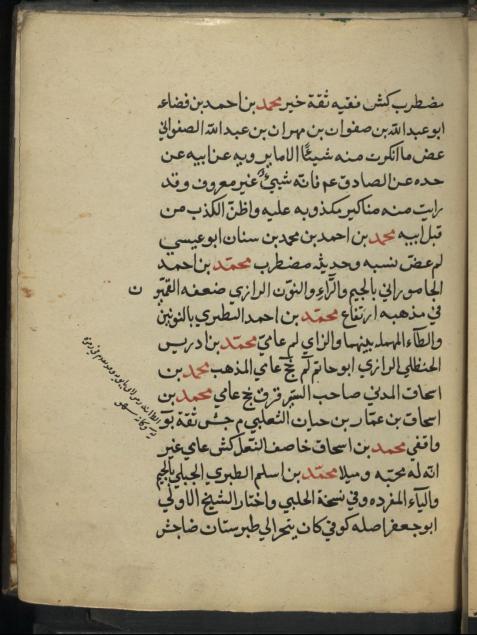 مضطرب كش فقيه ثقة خير محمد بن احمد بن قضاعه
ابو عبد الله بن صفوان بن مهران بن عبد الله الصفواني
غض ما انكرت منه شيئا الا ما يرويه عن ابيه عن
جده عن الصادق عم فانه شيئ غير معروف وقد
رايت منه مناكير مكذوبه عليه واظن الكذب من
قبل ابيه محمد بن احمد بن محمد بن سنان ابو عيسي
لم غض نسبه وحديثه مضطرب محمد بن احمد
الجاموراني بالجيم والراء والنون الرازي ضعفه القميون
في مذهبه ارتفاع محمد بن احمد النطنزي بالنونين
والطاء المهمله بينهما والزاي لم عامي محمد بن ادريس
الحنظلي الرازي ابو حاتم لم جخ عامي المذهب محمد بن
اسحاق المدني صاحب السير قر ق جخ عامي محمد بن
اسحاق بن عمار بن حيان التغلبي م جش ثقة
واقفي محمد بن اسحاق خاصف النعل كش عامي غير
انه له محبه وميلا محمد بن اسلم الطبري الجبلي بالجيم
والباء المفرده وفي نسخة الحلبي واختار الشيخ الاولي
ابو جعفر اصله كوفي كان يتجر الي طبرستان ضا جش